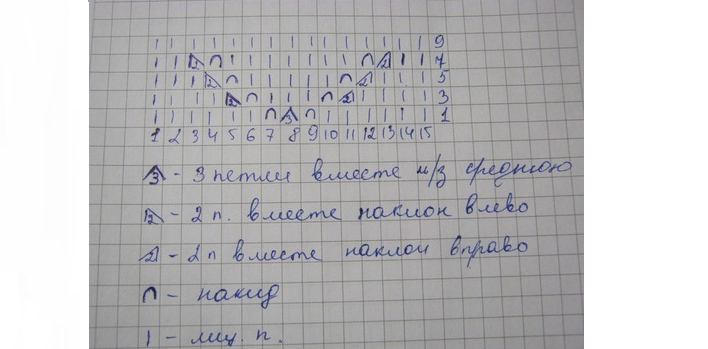 | | | | | | | | | | | | | | | 9
| | 2 ∩ | | | | | | | ∩ 2 | | 7
| | | 2 ∩ | | | | | ∩ 2 | | | 5
| | | | 2 ∩ | | | ∩ 2 | | | | 3
| | | | | | ∩ 3 ∩ | | | | | | 1
1 2 3 4 5 6 7 8 9 10 11 12 13 14 15
3 - 3 петли вместе и/з среднюю
2 - 2 п. вместе наклон влево
2 - 2 п вместе наклон вправо
∩ - накид
| - лиц. п.